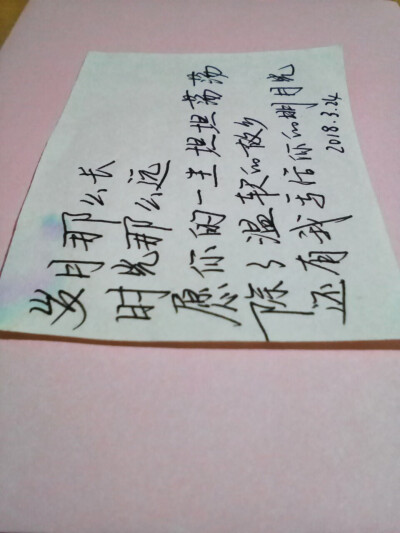 岁月那么长
时光那么远
愿你的一生坦坦荡荡
除了温软的故乡
还有我的明月光
2018.3.24